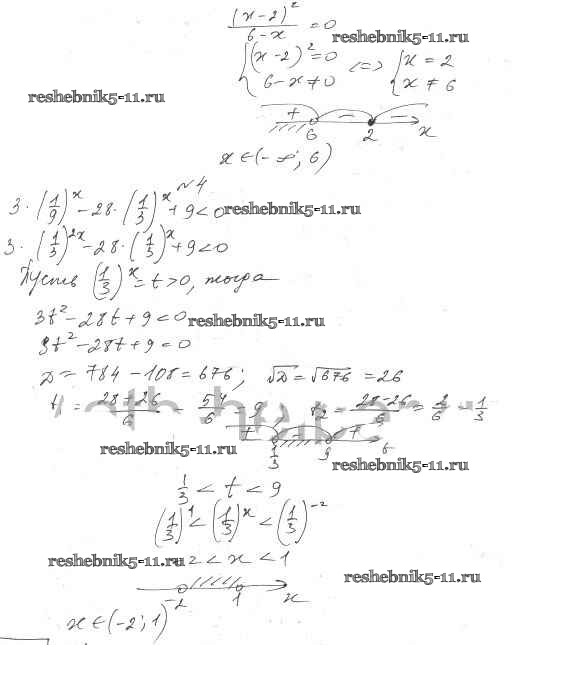 (x-2)²/(6-x) = 0
reshebnik5-11.ru
{(x-2)²=0 <=> {x = 2
6-x≠0 x ≠ 6
reshebnik5-11.ru
+ - -
6 2 x
x∈(-∞; 6)
№4
3·(1/9)^x - 28·(1/3)^x + 9 < 0
reshebnik5-11.ru
3·(1/3)^2x - 28·(1/3)^x + 9 < 0
Пусть (1/3)^x = t > 0, тогда
3t² - 28t + 9 < 0
reshebnik5-11.ru
3t² - 28t + 9 = 0
D = 784 - 108 = 676; √D = √676 = 26
t₁ = (28+26)/6 = 54/6 = 9; t₂ = (28-26)/6 = 2/6 = 1/3
reshebnik5-11.ru
+ - +
1/3 9 t
reshebnik5-11.ru
1/3 < t < 9
(1/3)^1 < (1/3)^x < (1/3)^-2
reshebnik5-11.ru
-2 < x < 1
reshebnik5-11.ru
-2 1 x
x∈(-2; 1)